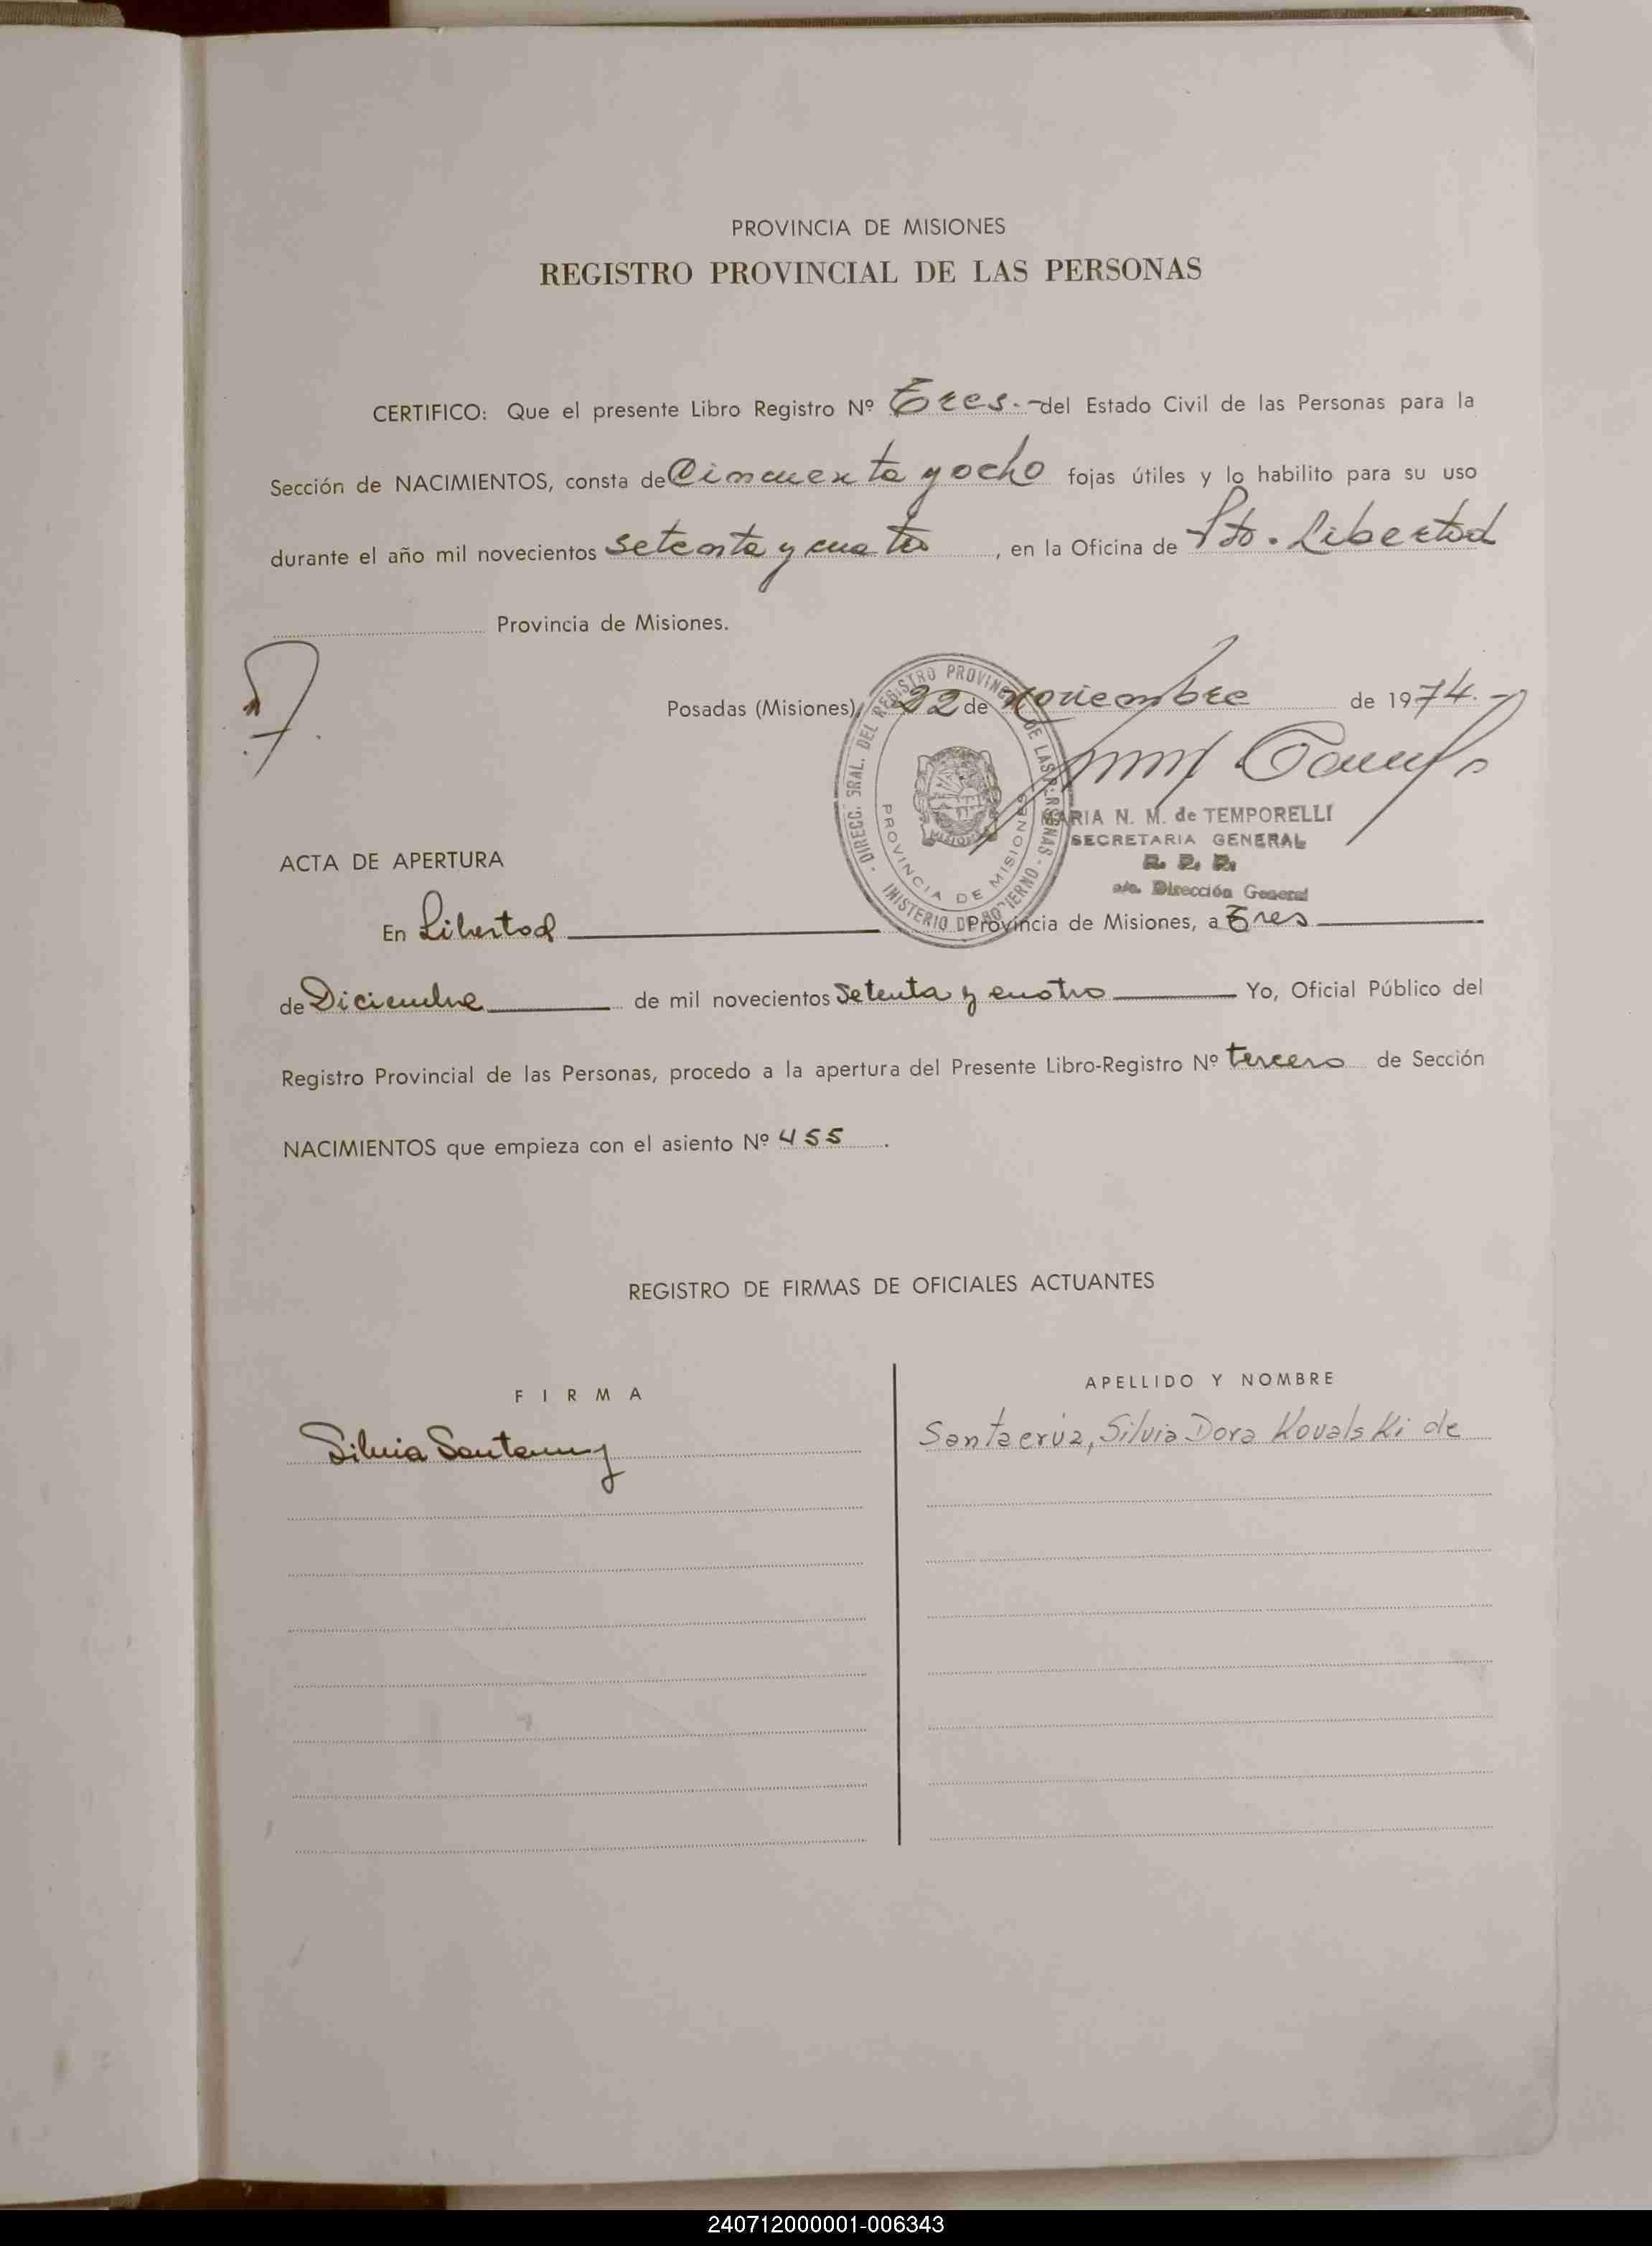 PROVINCIA DE MISIONES
REGISTRO PROVINCIAL DE LAS PERSONAS
CERTIFICO: Que el presente Libro Registro Nº Tres.- del Estado Civil de las Personas para la
Sección de NACIMIENTOS, consta de Cincuenta y ocho fojas útiles y lo habilito para su uso
durante el año mil novecientos setenta y cuatro, en la Oficina de Pto. Libertad
Provincia de Misiones.
Posadas (Misiones), 22 de noviembre de 1974.-
DIRECC. GRAL. DEL REGISTRO PROVINCIAL DE LAS PERSONAS - MINISTERIO DE GOBIERNO -
PROVINCIA DE MISIONES
MARIA N. M. de TEMPORELLI
SECRETARIA GENERAL
R. P. P.
a/c. Dirección General
ACTA DE APERTURA
En Libertad Provincia de Misiones, a Tres
de Diciembre de mil novecientos Setenta y cuatro Yo, Oficial Público del
Registro Provincial de las Personas, procedo a la apertura del Presente Libro-Registro Nº tercero de Sección
NACIMIENTOS que empieza con el asiento Nº 455.
REGISTRO DE FIRMAS DE OFICIALES ACTUANTES
FIRMA
APELLIDO Y NOMBRE
Silvia Santacruz
Santacruz, Silvia Dora Kovalski de
240712000001-006343